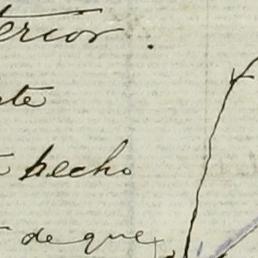 terior.
te
hecho
de que